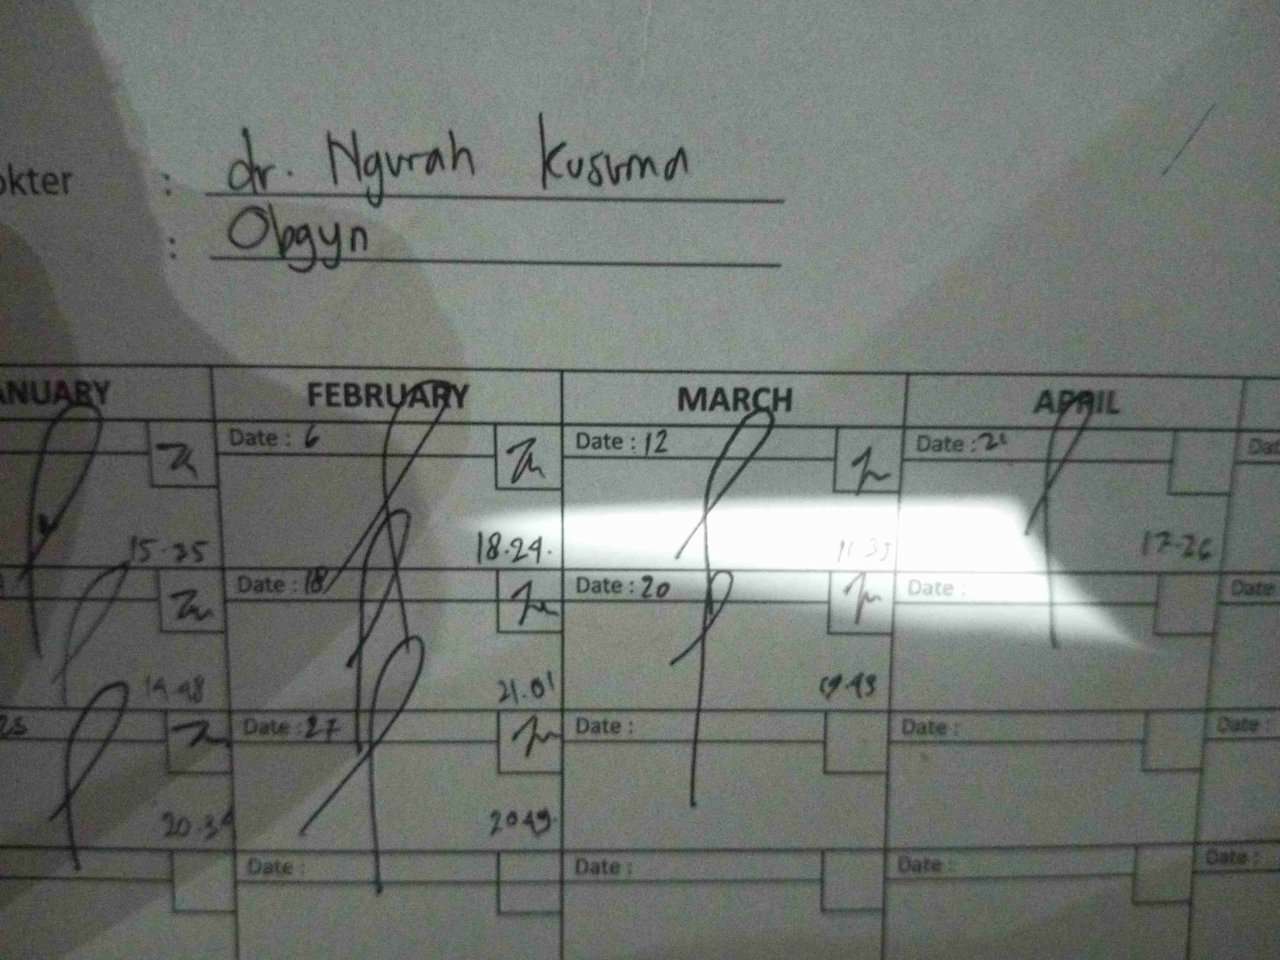 okter : dr. Ngurah Kusuma
: Obgyn
ANUARY FEBRUARY MARCH APRIL
Date : 6 Date : 12 Date : 21 Dat
15.35 18.24. 11.35 17.26
Date : 18 Date : 20 Date : Date
14.48 21.01 19.43
25 Date : 27 Date : Date : Date :
20.3 2049
Date : Date : Date : Date :